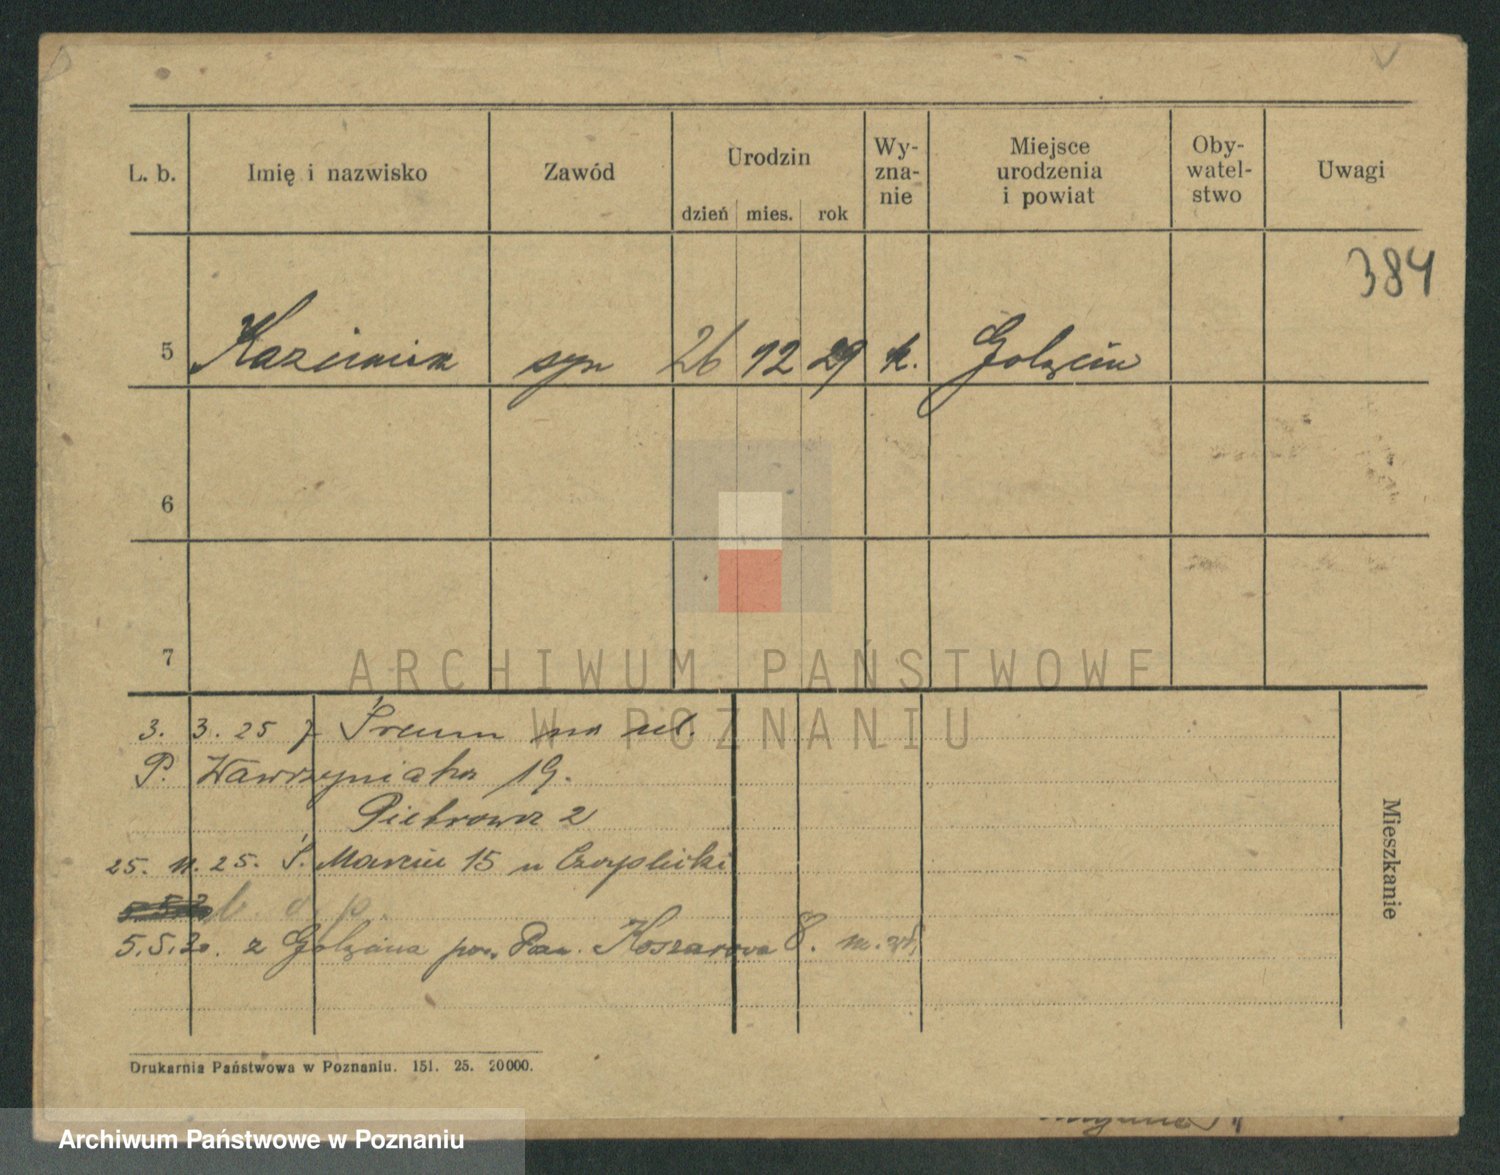 L. b. Imię i nazwisko Zawód Urodzin dzień mies. rok Wy-zna-nie Miejsce urodzenia i powiat Oby-watel-stwo Uwagi
384
5 Kazimierz syn 26 12 29 k. Golęcin
6
7
ARCHIWUM PAŃSTWOWE
W POZNANIU
3. 3. 25 z Śremu na ul.
P. Wawrzyniaka 19.
Piotrowo 2
25. 11. 25. Ś. Marcin 15 u Czaplicki
b. d. p.
5.5.30. z Golęcina pow. Poz. Koszarowa 8. m.
Mieszkanie
Drukarnia Państwowa w Poznaniu. 151. 25. 20000.
Archiwum Państwowe w Poznaniu